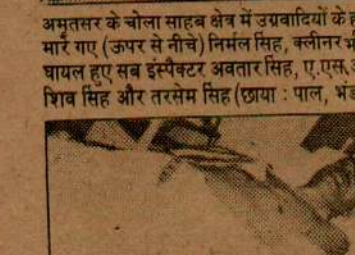 अमृतसर के चोला साहब क्षेत्र में उग्रवादियों के
मारे गए (ऊपर से नीचे) निर्मल सिंह, क्लीनर
घायल हुए सब इंस्पैक्टर अवतार सिंह, ए.एस.
शिव सिंह और तरसेम सिंह (छाया : पाल,